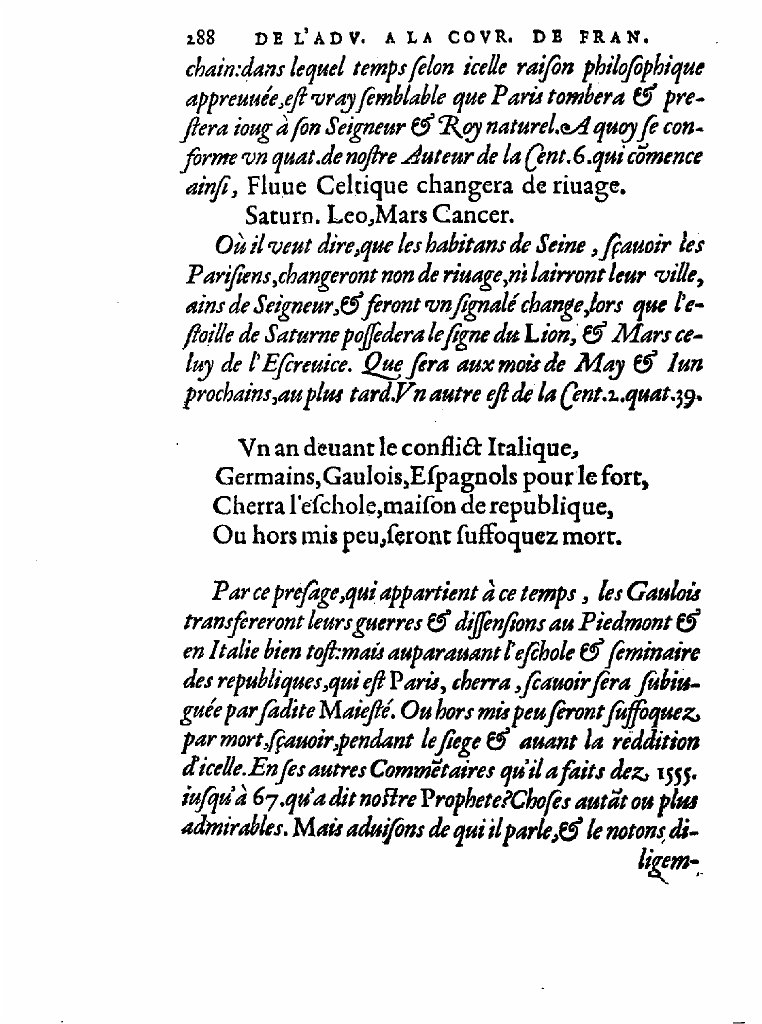 288 DE L'ADV. A LA COVR. DE FRAN.
chain:dans lequel temps ſelon icelle raiſon philoſophique
appreuuée,eſt vray ſemblable que Paris tombera & pre-
ſtera ioug à ſon Seigneur & Roy naturel.A quoy ſe con-
forme vn quat.de noſtre Auteur de la Cent.6.qui cõmence
ainſi, Fluue Celtique changera de riuage.
Saturn. Leo,Mars Cancer.
Où il veut dire,que les habitans de Seine , ſçauoir les
Pariſiens,changeront non de riuage,ni lairront leur ville,
ains de Seigneur,& feront vn ſignalé change,lors que l'e-
ſtoille de Saturne poſſedera le ſigne du Lion, & Mars ce-
luy de l'Eſcreuice. Que ſera aux mois de May & Iun
prochains,au plus tard.Vn autre eſt de la Cent.2.quat.39.
Vn an deuant le conflict Italique,
Germains,Gaulois,Eſpagnols pour le fort,
Cherra l'eſchole,maiſon de republique,
Ou hors mis peu,ſeront ſuffoquez mort.
Par ce preſage,qui appartient à ce temps , les Gaulois
transfereront leurs guerres & diſſenſions au Piedmont &
en Italie bien toſt:mais auparauant l'eſchole & ſeminaire
des republiques,qui eſt Paris, cherra ,ſcauoir ſera ſubiu-
guée par ſadite Maieſté. Ou hors mis peu ſeront ſuffoquez
par mort,ſçauoir,pendant le ſiege & auant la reddition
d'icelle.En ſes autres Commẽtaires qu'il a faits dez 1555.
iuſqu'à 67.qu'a dit noſtre Prophete?Choſes autãt ou plus
admirables. Mais aduiſons de qui il parle,& le notons di-
ligem-